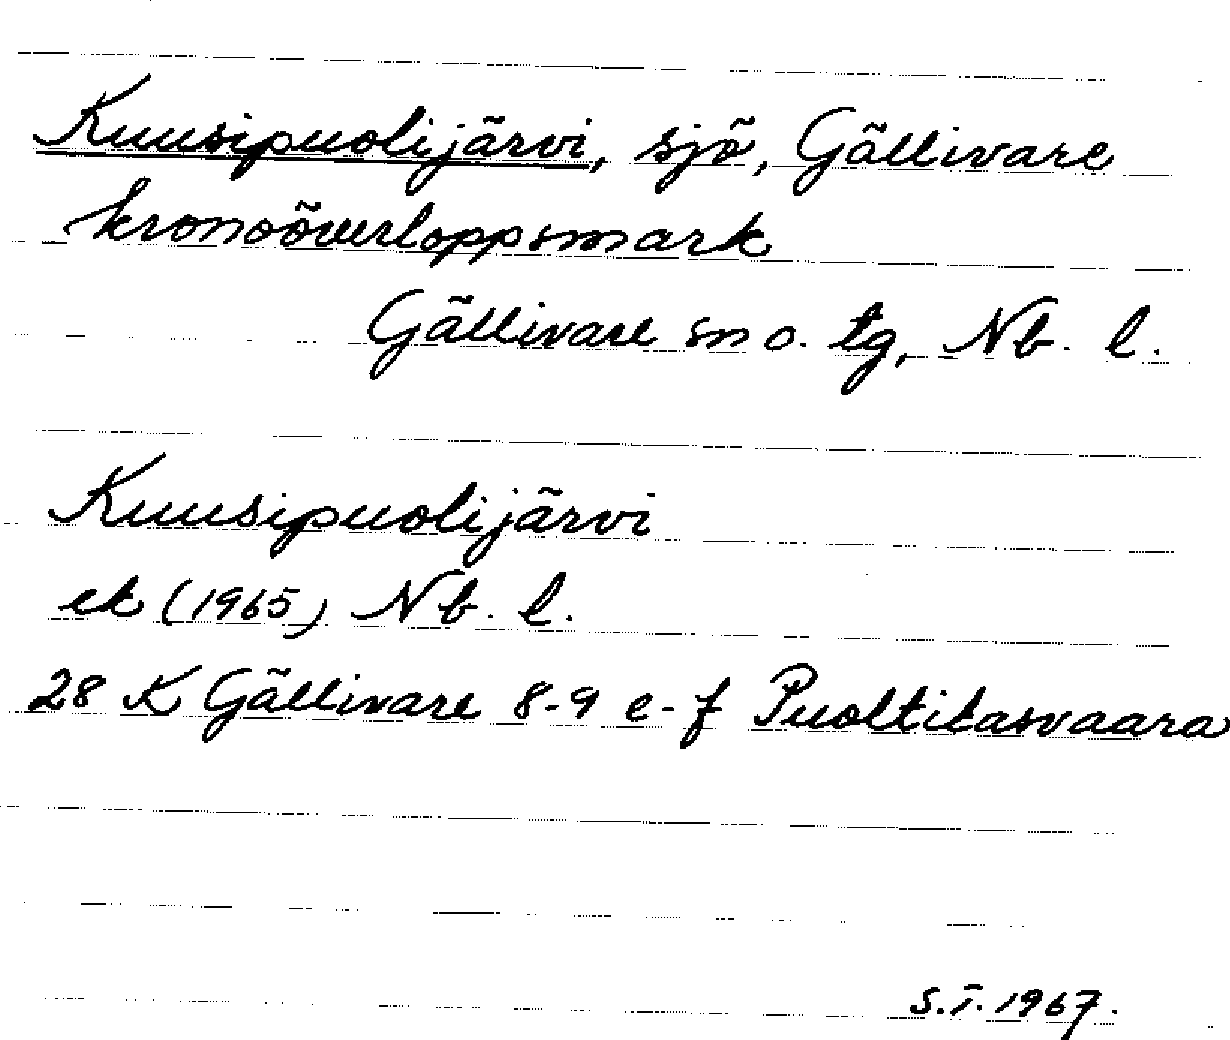 Kuusipuolijärvi, sjö, Gällivare
kronoöverloppsmark
Gällivare sn o. tg, Nb. l.
Kuusipuolijärvi
ek (1965) Nb. l.
28 K Gällivare 8-9 e-f Puoltikasvaara
S.I. 1967.